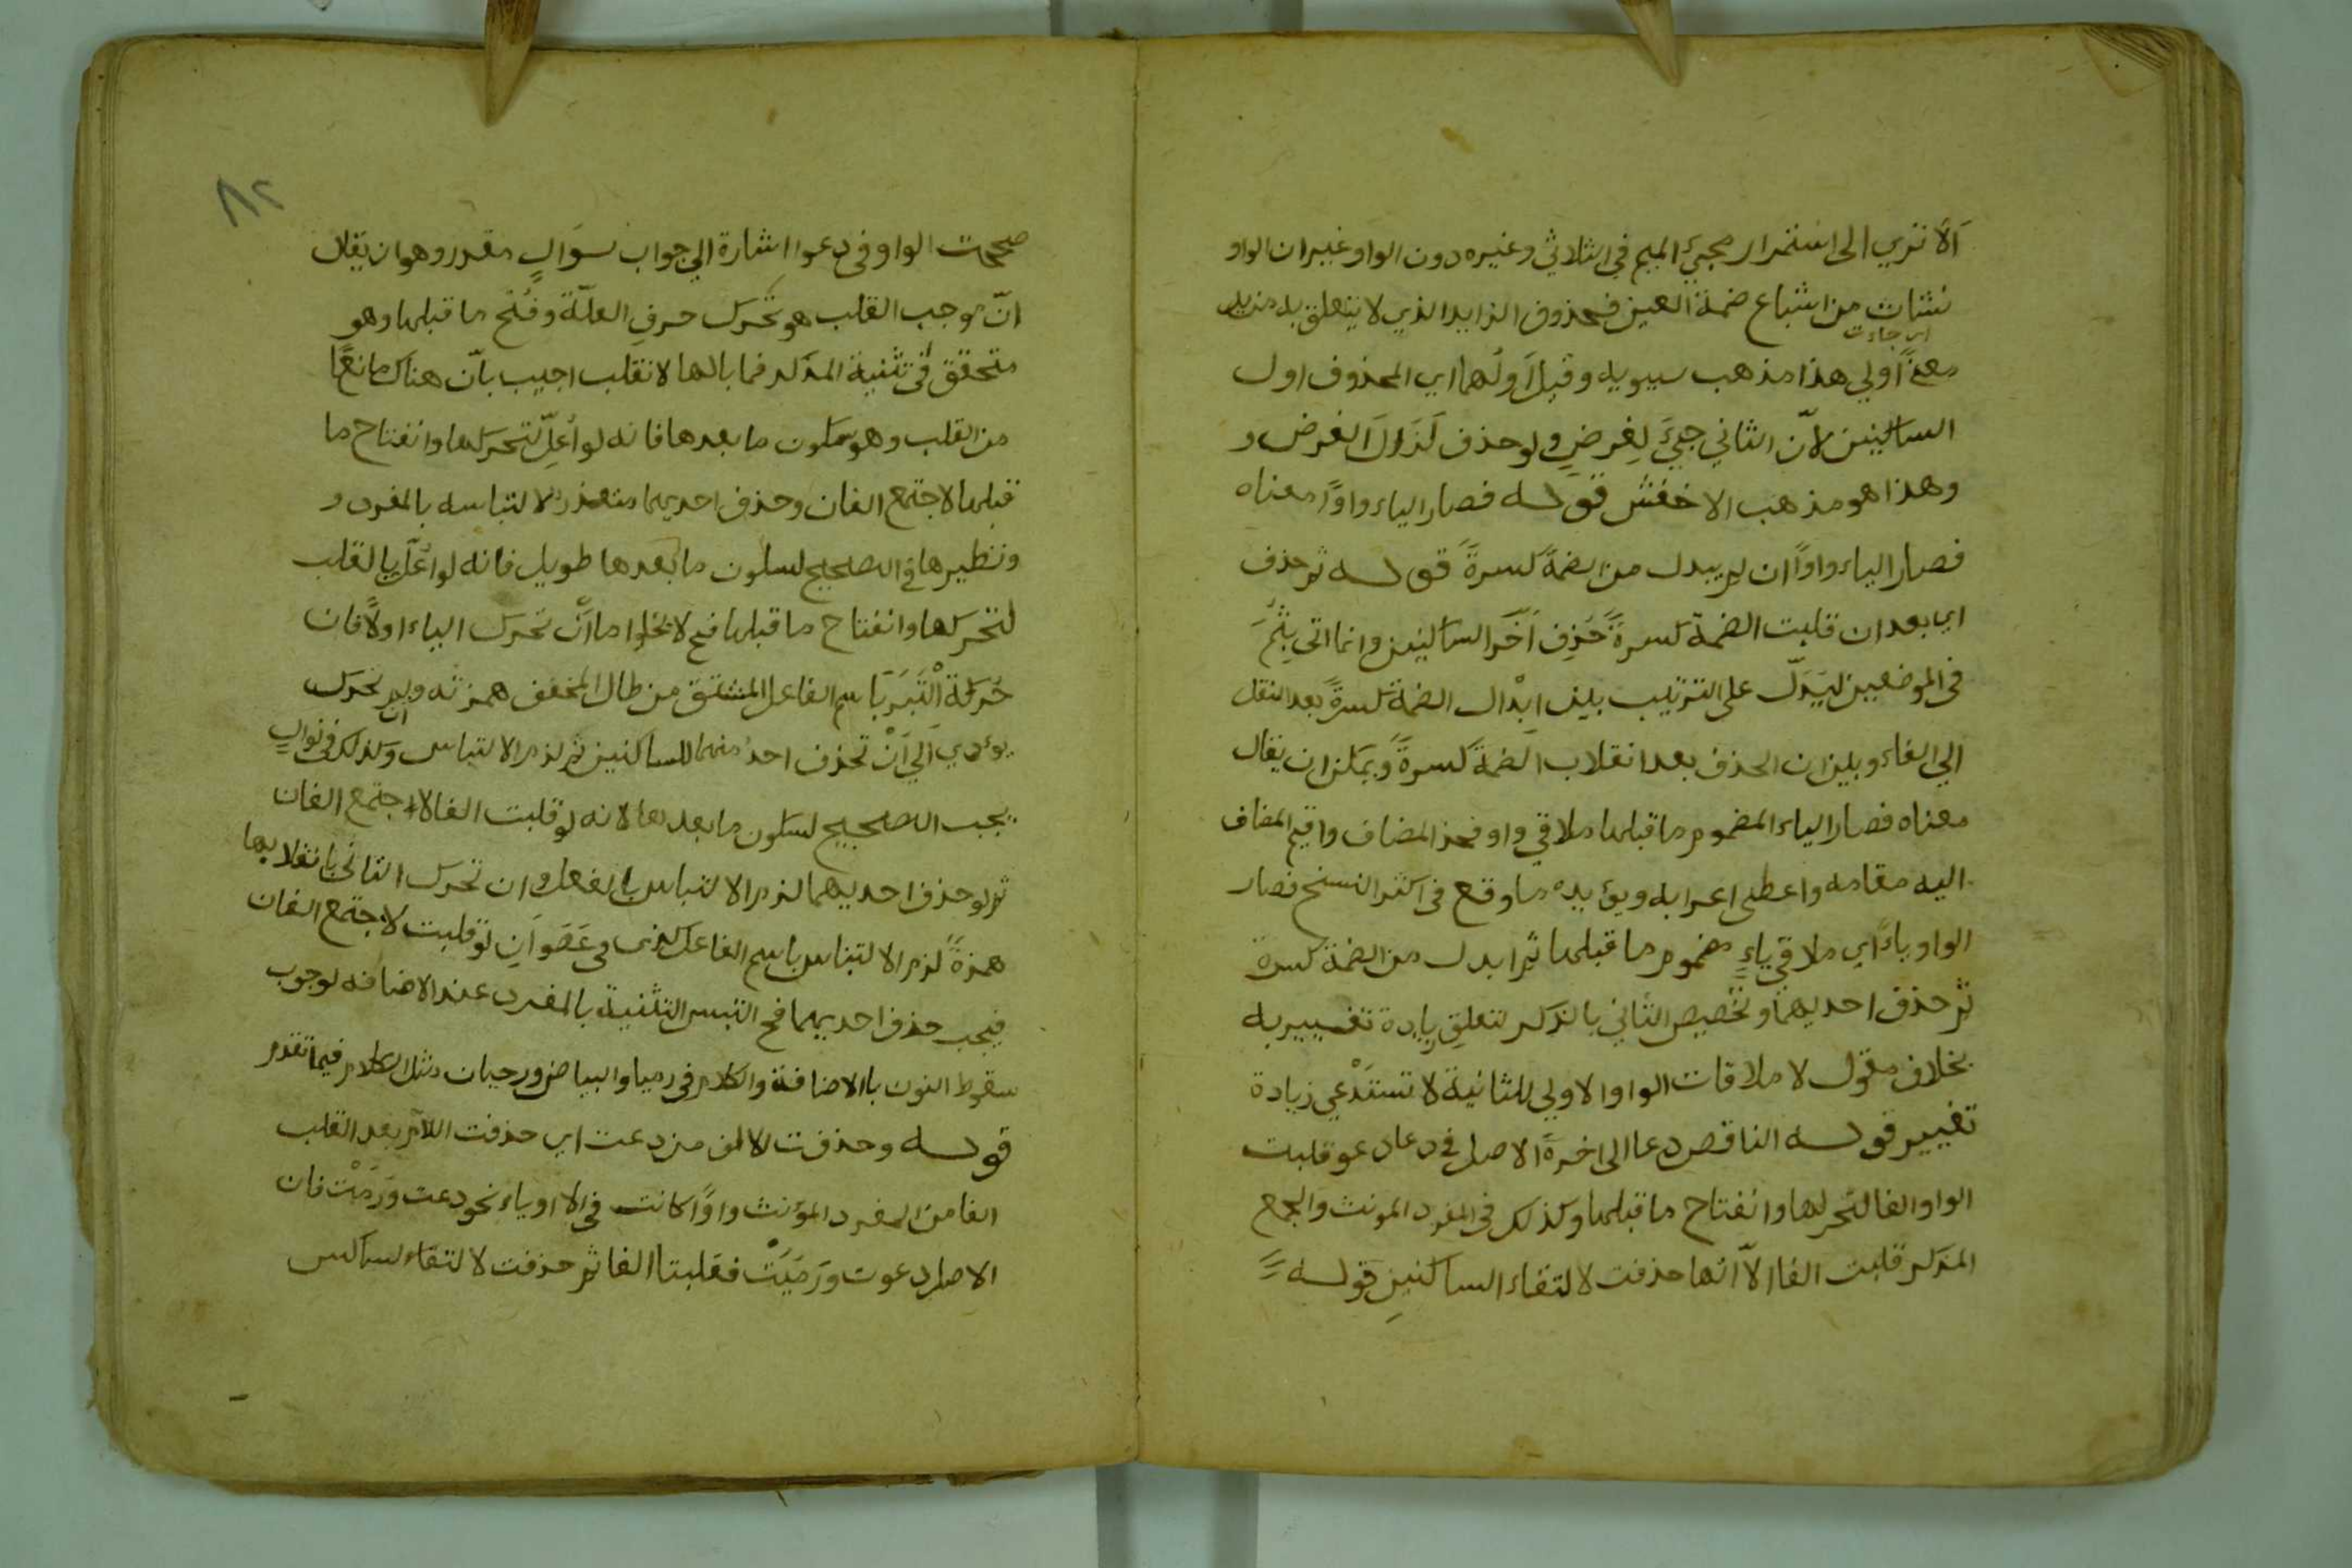 ألا تري الى استمرار مجيئ الميم في الثلاثي وغيره دون الواو غير ان الواو
نشات من اشباع ضمة العين فحذوف الزايد الذي لا يتعلق به مزيد
اي جاءت
معنًى أولي هذا مذهب سيبويه وقيل أولهما اي المحذوف اول
الساكنين لأنّ الثاني جيئَ لغرضٍ ولو حذف لزال الغرض و
وهذا هو مذهب الاخفش قوله فصار الياء واوًا معناه
فصار الياء واوًا ان لم يبدل من الضمة كسرةً قوله ثم حذف
اي بعد ان قلبت الضمة كسرةً حُذِف آخر الساكنين وانما اتى بِثُمَّ
في الموضعين ليدلّ على الترتيب بين ابدال الضمة كسرة بعد النقل
الي الفاء وبين ان الحذف بعد انقلاب الضمة كسرةً ويمكن ان يقال
معناه فصار الياء المضموم ما قبلها ملاقي واو فحذ المضاف واقيم المضاف
اليه مقامه واعطى اعرابه ويؤيده ما وقع في اكثر النسخ فصار
الواو ياءً اي ملاقي ياءٍ مضموم ما قبلها ثم ابدل من الضمة كسرة
ثم حذف احديهما وتخصيص الثاني بالذكر لتعلق زيادة تغيير به
بخلاف مقول لا ملاقات الواو الاولي للثانية لا تستدعي زيادة
تغيير قوله الناقص دعا الى اخرة الاصل في دعا دعو قلبت
الواو الفا لتحركها وانفتاح ما قبلها وكذلك في المفرد المونث والجمع
المذكر قلبت الفا الاّ انها حذفت لالتقاء الساكنين قوله
٨٢
صححت الواو في دعوا اشارة الي جواب سؤالٍ مقدر وهو ان يقال
انّ موجب القلب هو تحرك حرف العلّة وفتح ما قبلها وهو
متحقق في تثنية المذكر فما بالها لا تقلب اجيب بأنّ هناك مانعًا
من القلب وهو سكون ما بعدها فانه لو أعلّ لتحركها وانفتاح ما
قبلها لاجتمع الفان وحذف احديهما متعذر لالتباسه بالمفرد و
ونظيرها في التصحيح لسكون ما بعدها طويل فانه لو أعلّ بالقلب
لتحركها وانفتاح ما قبلها فح لا يخلوا ما أنْ تحرك الياء اولًا فان
حركة التبس باسم الفاعل المشتق من طال المخفف همزته وان لم تحرك
يؤدي الي أنْ تحذف احد منهما للساكنين ثم لزم الالتباس وكذلك في نوال
يجب التصحيح لسكون ما بعدها لانه لو قلبت الفا لاجتمع الفان
ثم لو حذف احديهما لزم الالتباس بالفعل وان تحرك الثاني بانقلابها
همزةً لزم الالتباس باسم الفاعل كذى وعَصَوَانِ لو قلبت لاجتمع الفان
فيجب حذف احديهما فح التبس التثنية بالمفرد عند الاضافه لوجوب
سقوط النون باالاضافة والكلام في رميا والبياض ورحيان مثل الكلام فيما تقدم
قوله وحذفت الالف من دعت اي حذفت اللام بعد القلب
الفا من المفرد المؤنث واوًا كانت في الا او ياء نحو دعت ورَمَتْ فان
الاصل دعوت ورَمَيَتْ فقلبتا الفا ثم حذفت لالتقاء الساكنين